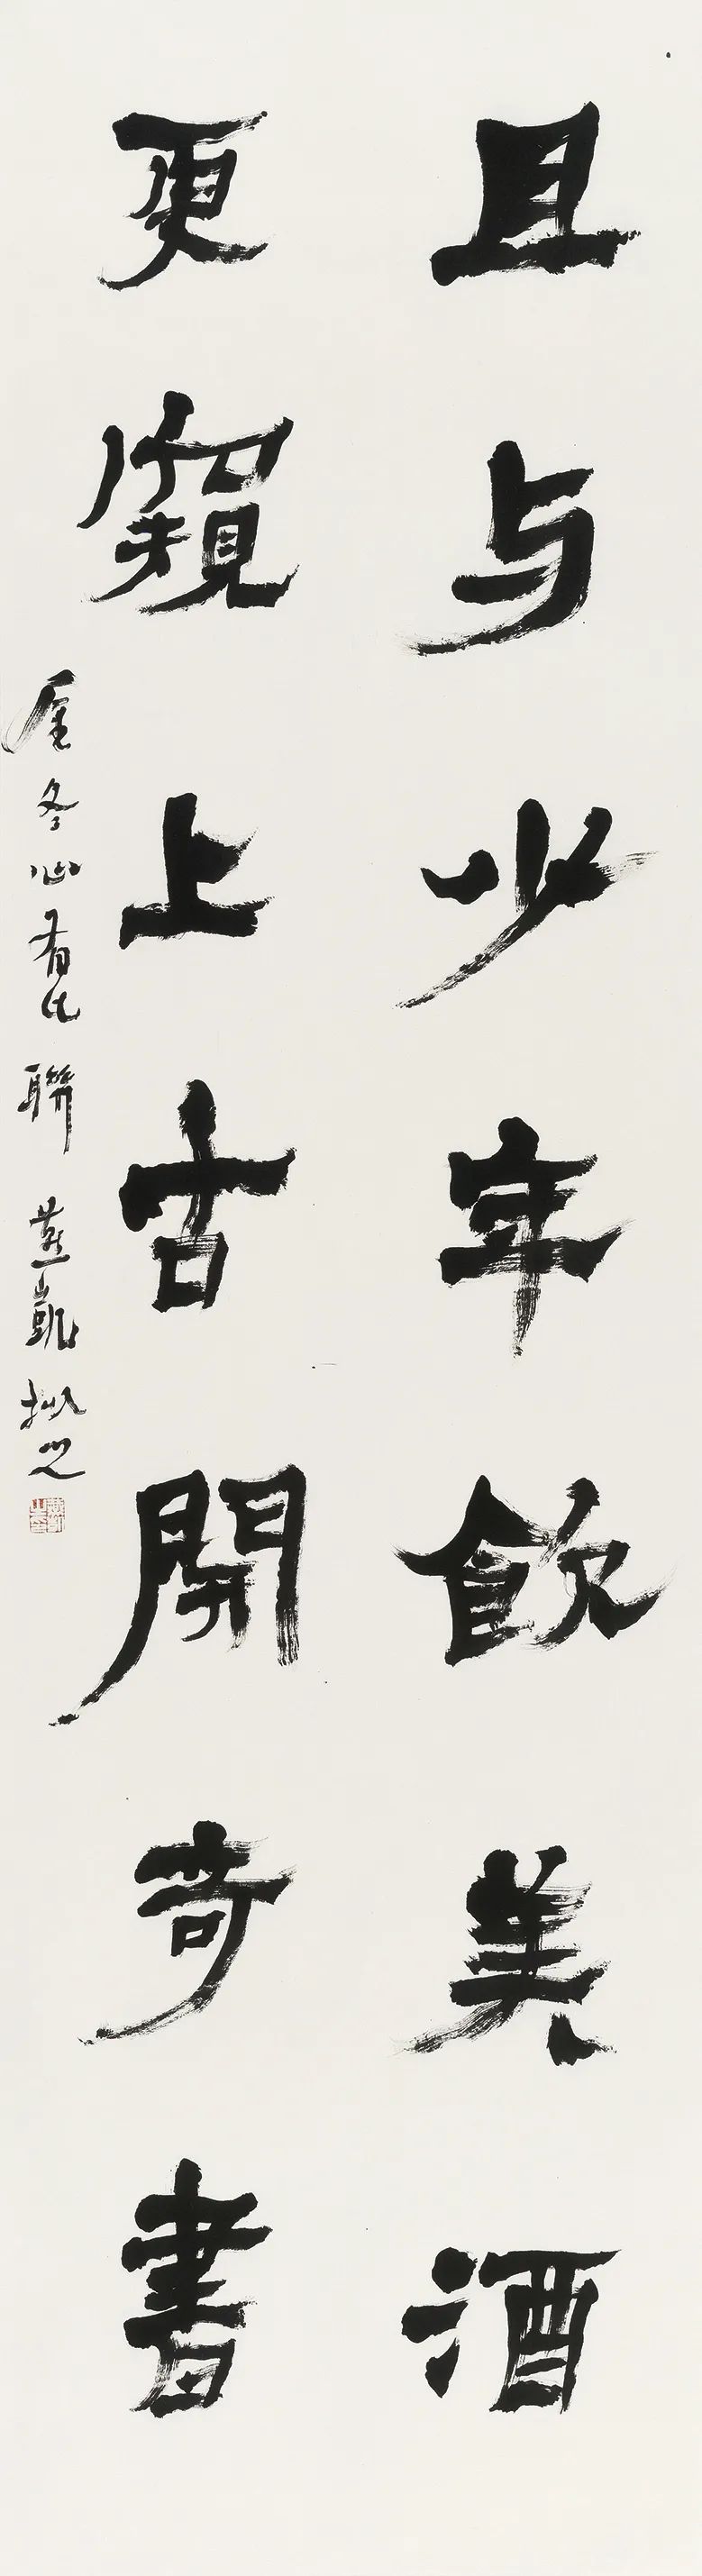 且与少年飲美酒
更窺上古開奇書
金冬心有此聯 燕凱擬之